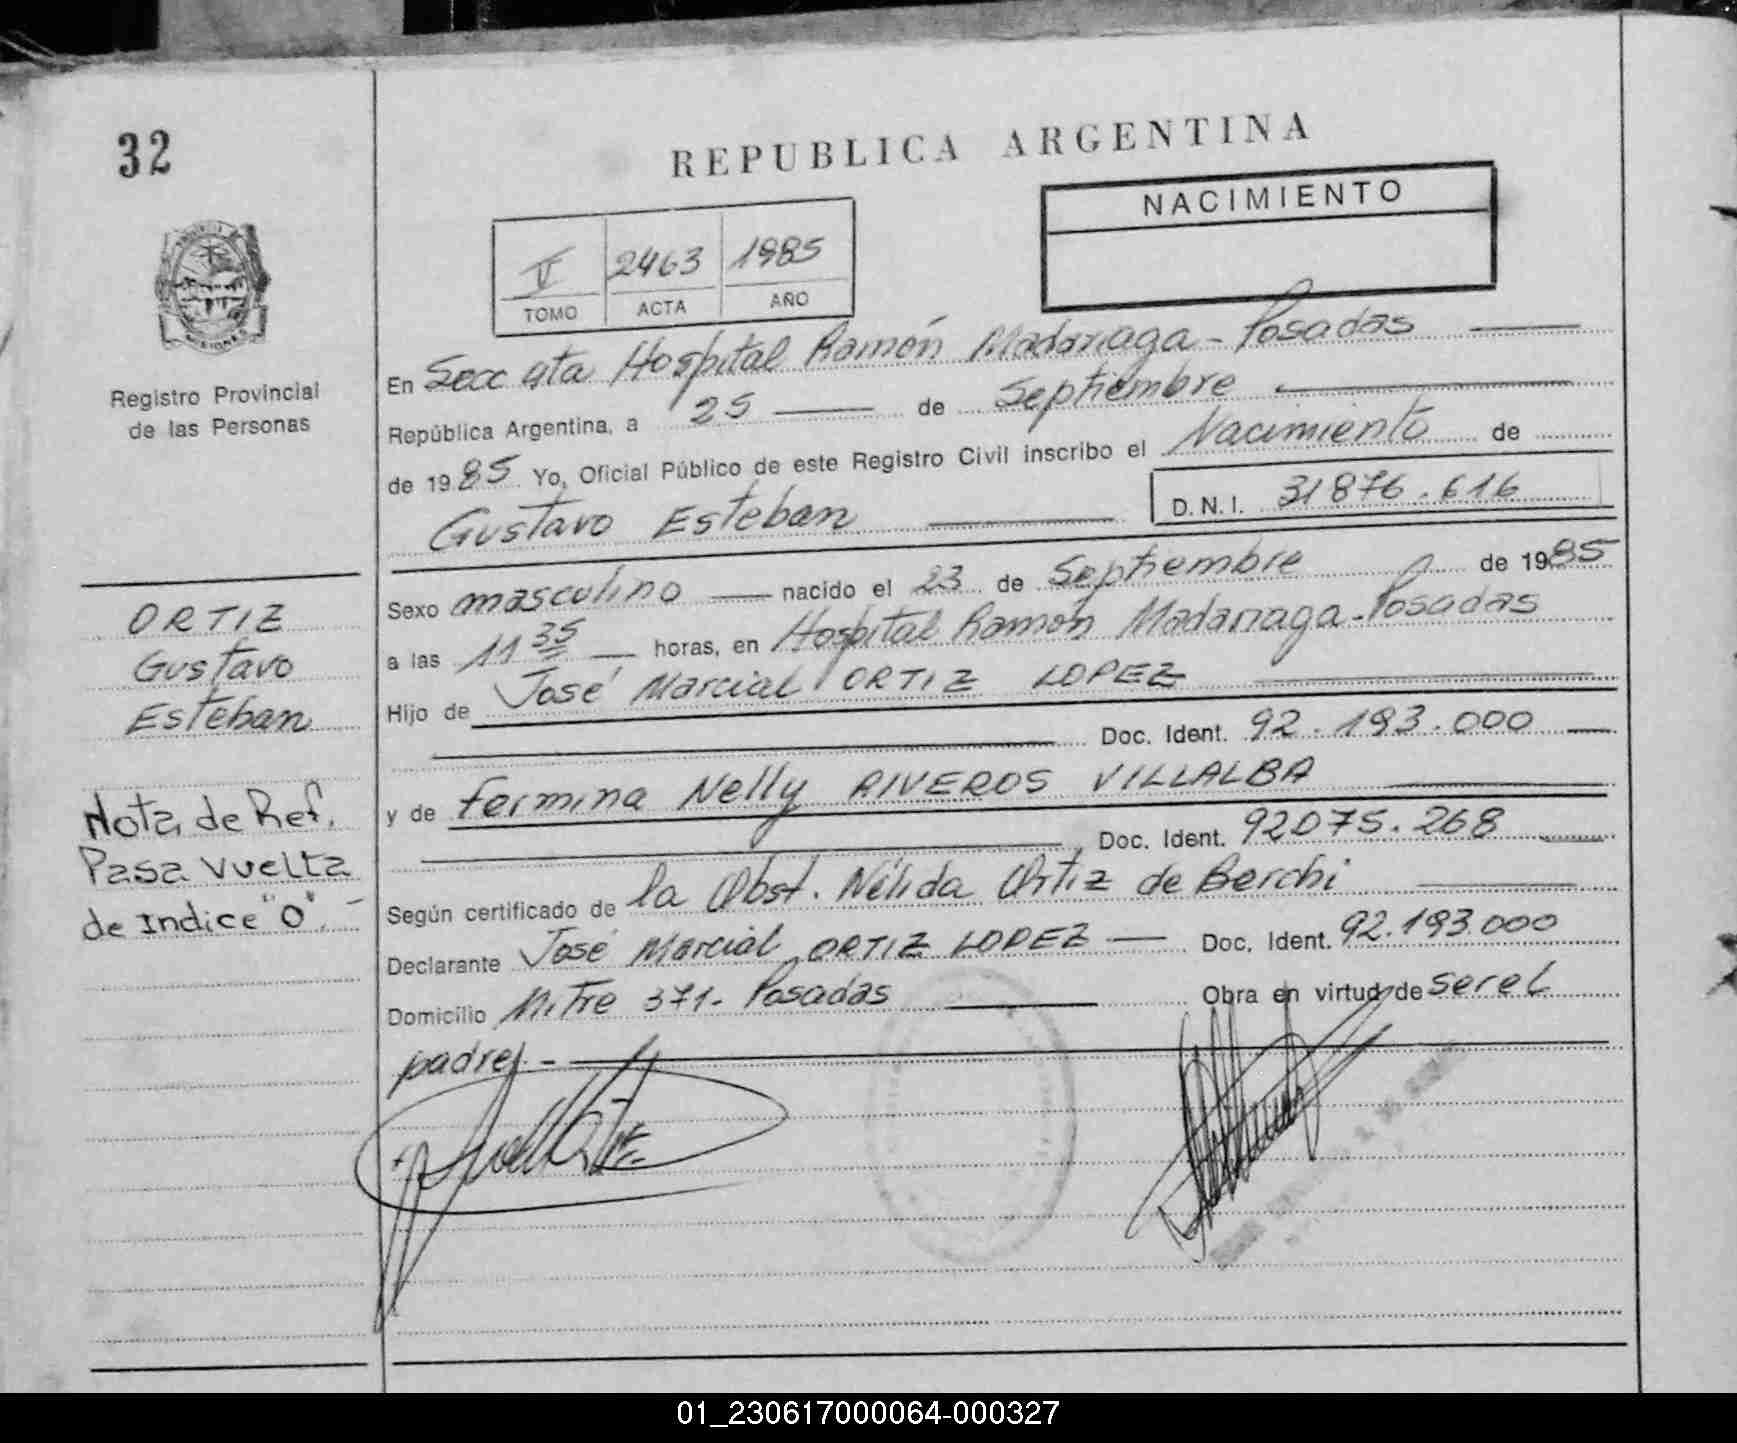 32
REPUBLICA ARGENTINA
NACIMIENTO
V 2463 1985
TOMO ACTA AÑO
Registro Provincial
de las Personas
En Secc 4ta Hospital Ramón Madariaga - Posadas
República Argentina, a 25 de Septiembre
de 1985 Yo, Oficial Público de este Registro Civil inscribo el Nacimiento de
Gustavo Esteban D.N.I. 31876.616
ORTIZ
Gustavo
Esteban
Sexo masculino nacido el 23 de Septiembre de 1985
a las 11 35 horas, en Hospital Ramón Madariaga - Posadas
Hijo de José Marcial ORTIZ LOPEZ
Doc. Ident. 92.193.000
y de Fermina Nelly RIVEROS VILLALBA
Doc. Ident. 92075.268
Nota de Ref.
Pasa vuelta
de Indice "O". -
Según certificado de la Obst. Nélida Ortiz de Berchi
Declarante José Marcial ORTIZ LOPEZ Doc. Ident. 92.193.000
Domicilio Mitre 371 - Posadas Obra en virtud de ser el
padre. -
01_230617000064-000327